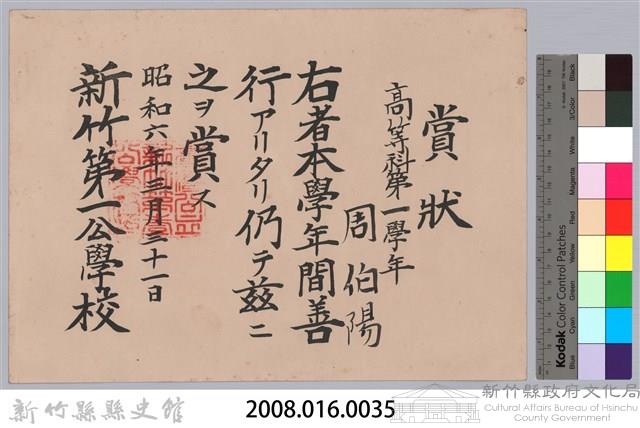 賞狀
高等科第一學年
周伯陽
右者本學年間善
行アリタリ仍テ茲ニ
之ヲ賞ス
昭和六年三月三十一日
新竹第一公學校
Kodak Color Control Patches
Blue
Cyan
Green
Yellow
Red
Magenta
White
3/Color
Black
新竹縣縣史館
2008.016.0035
新竹縣政府文化局
Cultural Affairs Bureau of Hsinchu
County Government